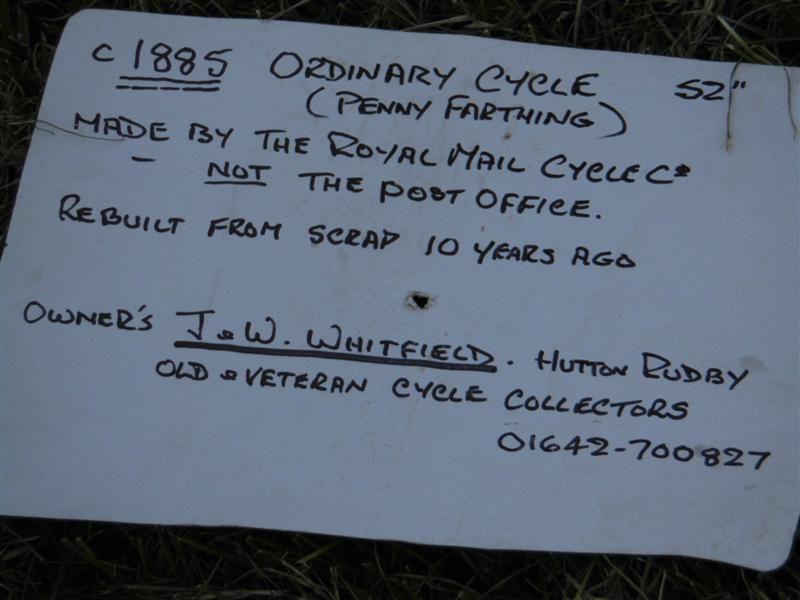 c 1885 ORDINARY CYCLE 52"
(PENNY FARTHING)
MADE BY THE ROYAL MAIL CYCLE Co
- NOT THE POST OFFICE.
REBUILT FROM SCRAP 10 YEARS AGO
OWNER'S J & W. WHITFIELD. HUTTON RUDBY
OLD & VETERAN CYCLE COLLECTORS
01642-700827